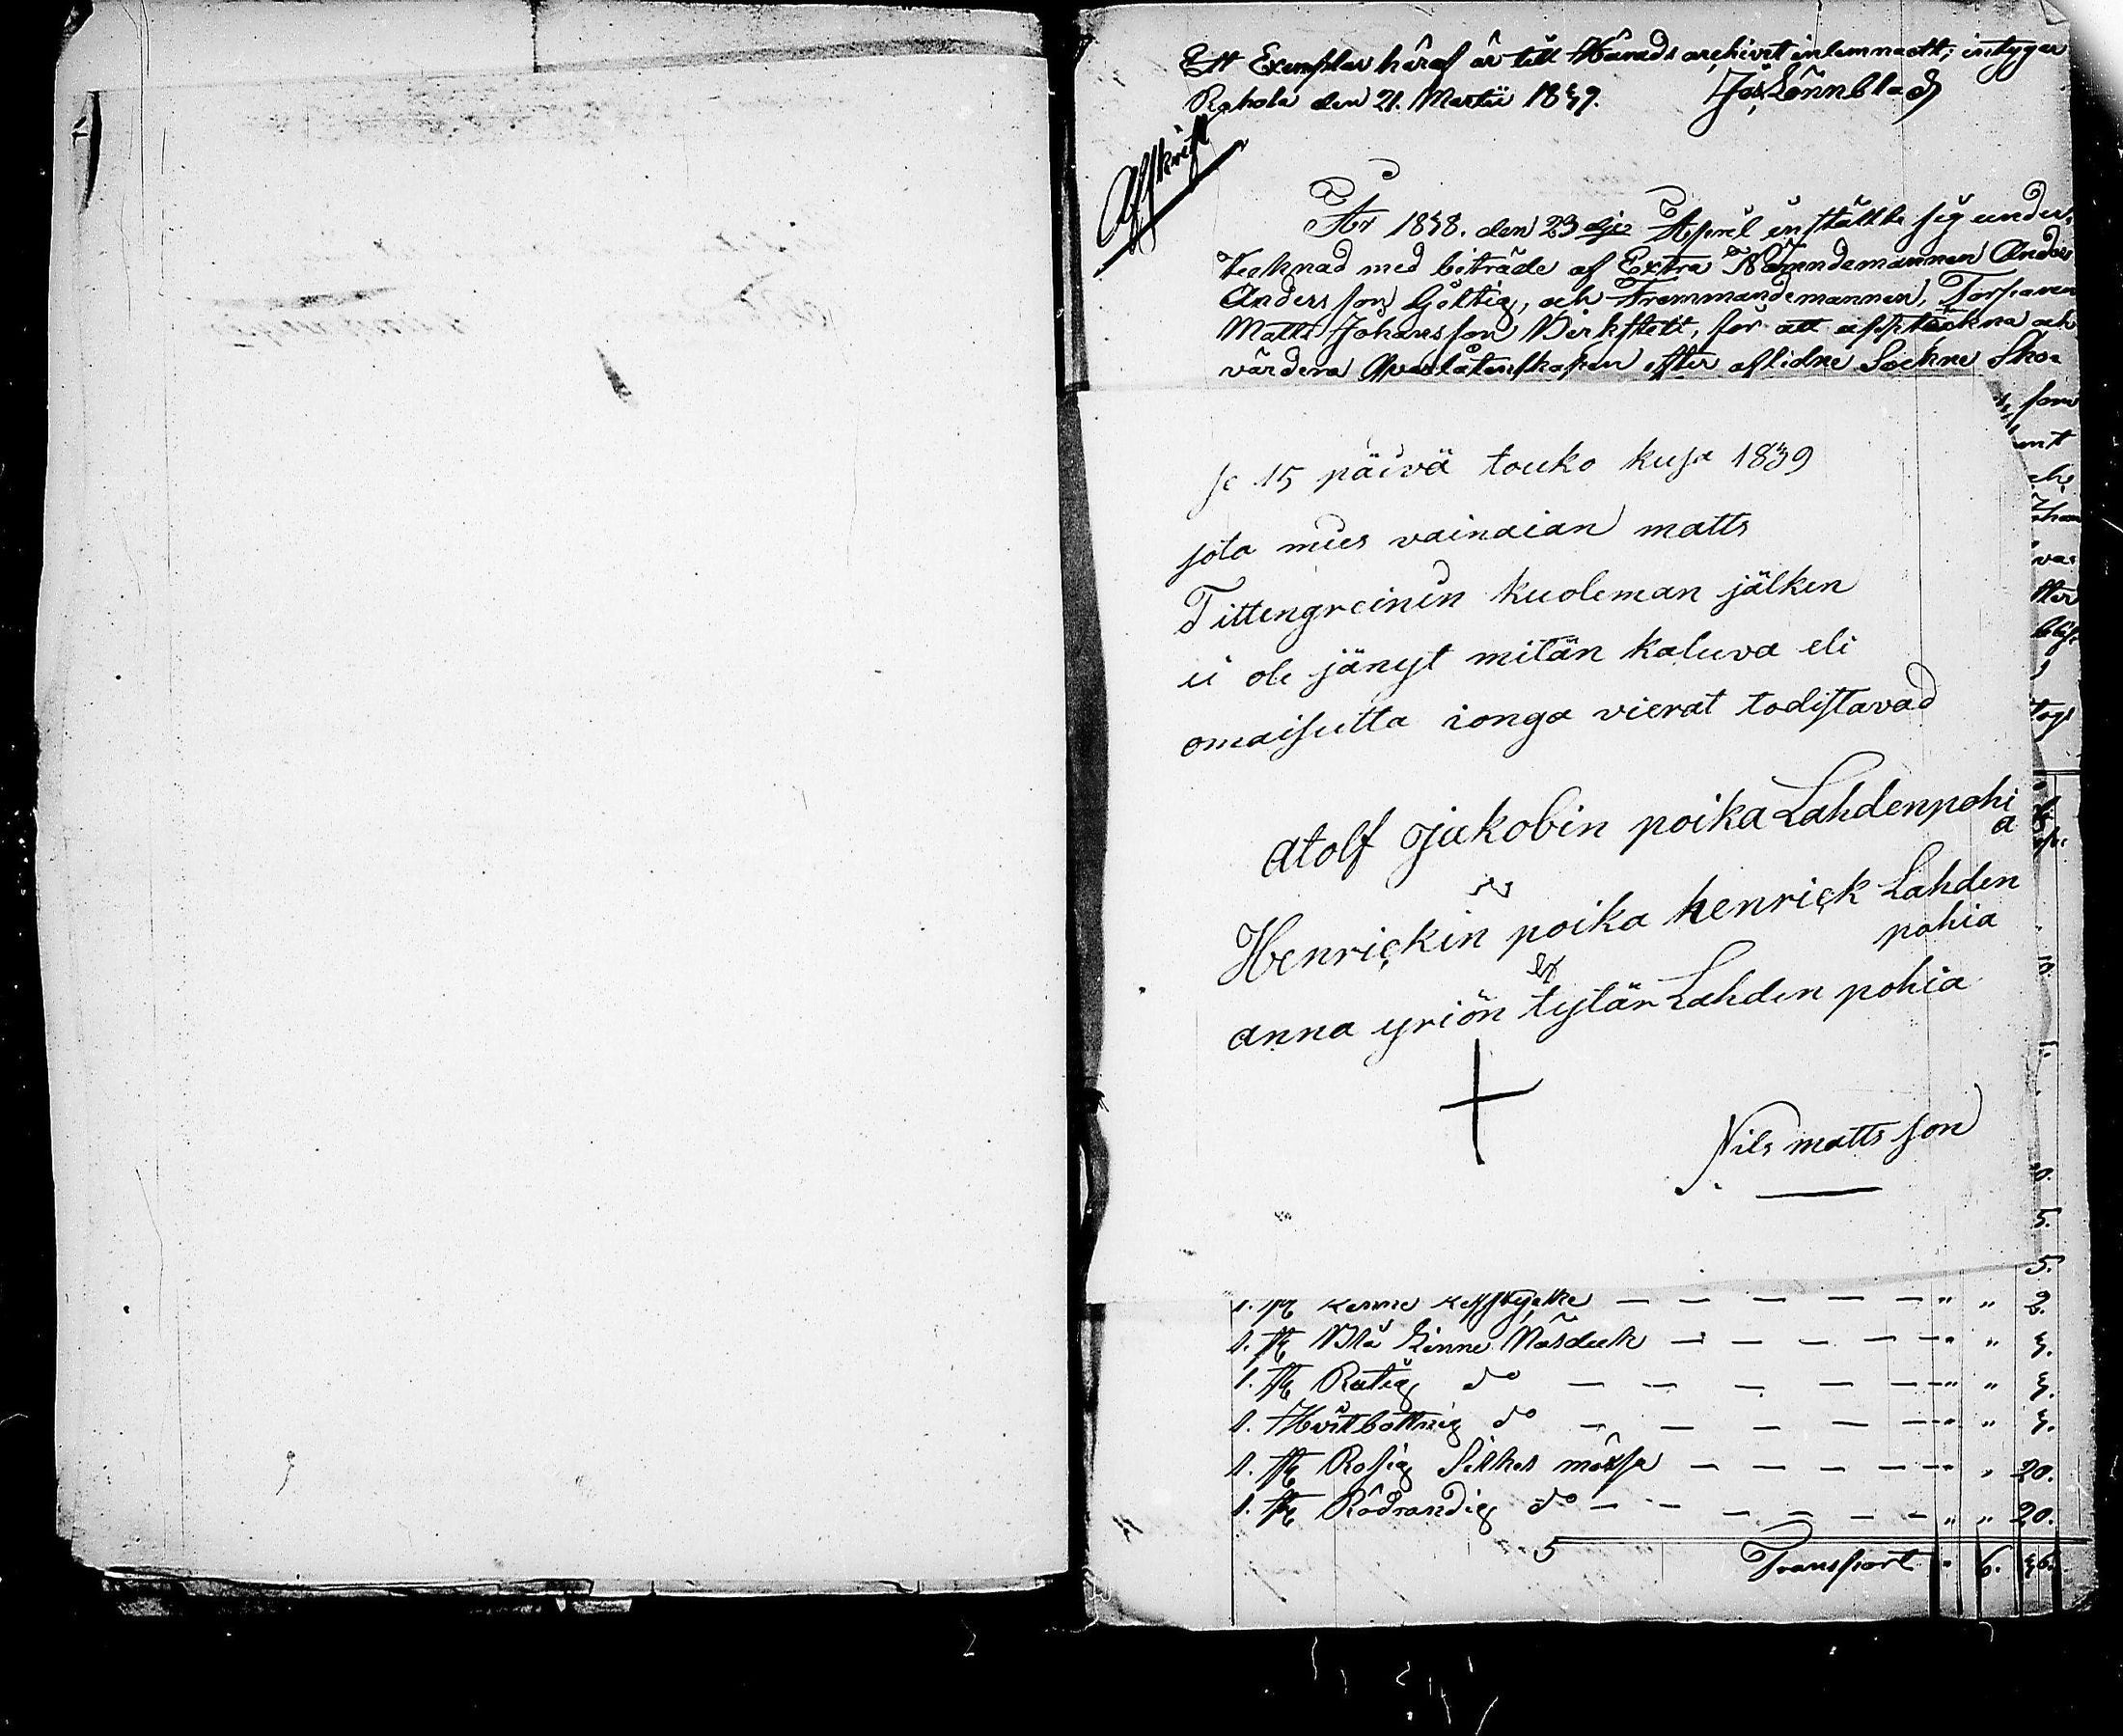 Ett Exemplar häraf är till Härads archivet inlemnadt; intygar
Rahola den 21. Martii 1839. Jos Lönnblad
Afskrift
År 1838. den 23 dje April instälte sig under-
tecknad med biträde af Extra Nämndemannen Anders
Andersson Göltig, och Fremmandemannen, Torparen
Matts Johansson Birkstett, för att uppteckna och
värdera Qvarlåtenskapen efter aflidne Sockne Sko-
Se 15 päivä touko kusa 1839
sota mies vainaian matts
Tittengreinin kuoleman jälken
ei ole jänyt mitän kaluva eli
omaisutta ionga vierat todistavad
atolf jakobin poika Lahdenpohi
a
Henrickin poika henrick Lahden
pohia
anna yriön tytär Lahden pohia
Nils matts son
5.
1. st Linne " " 2.
1. st Blå Linne Näsduk " " 3.
1. st Rutig do " " 3.
1. Hvitbottnig do " " 3.
1. st Rosig Silkes mössa " " 20.
1. st Rödrandig do " " 20.
Transport " 6. 36.